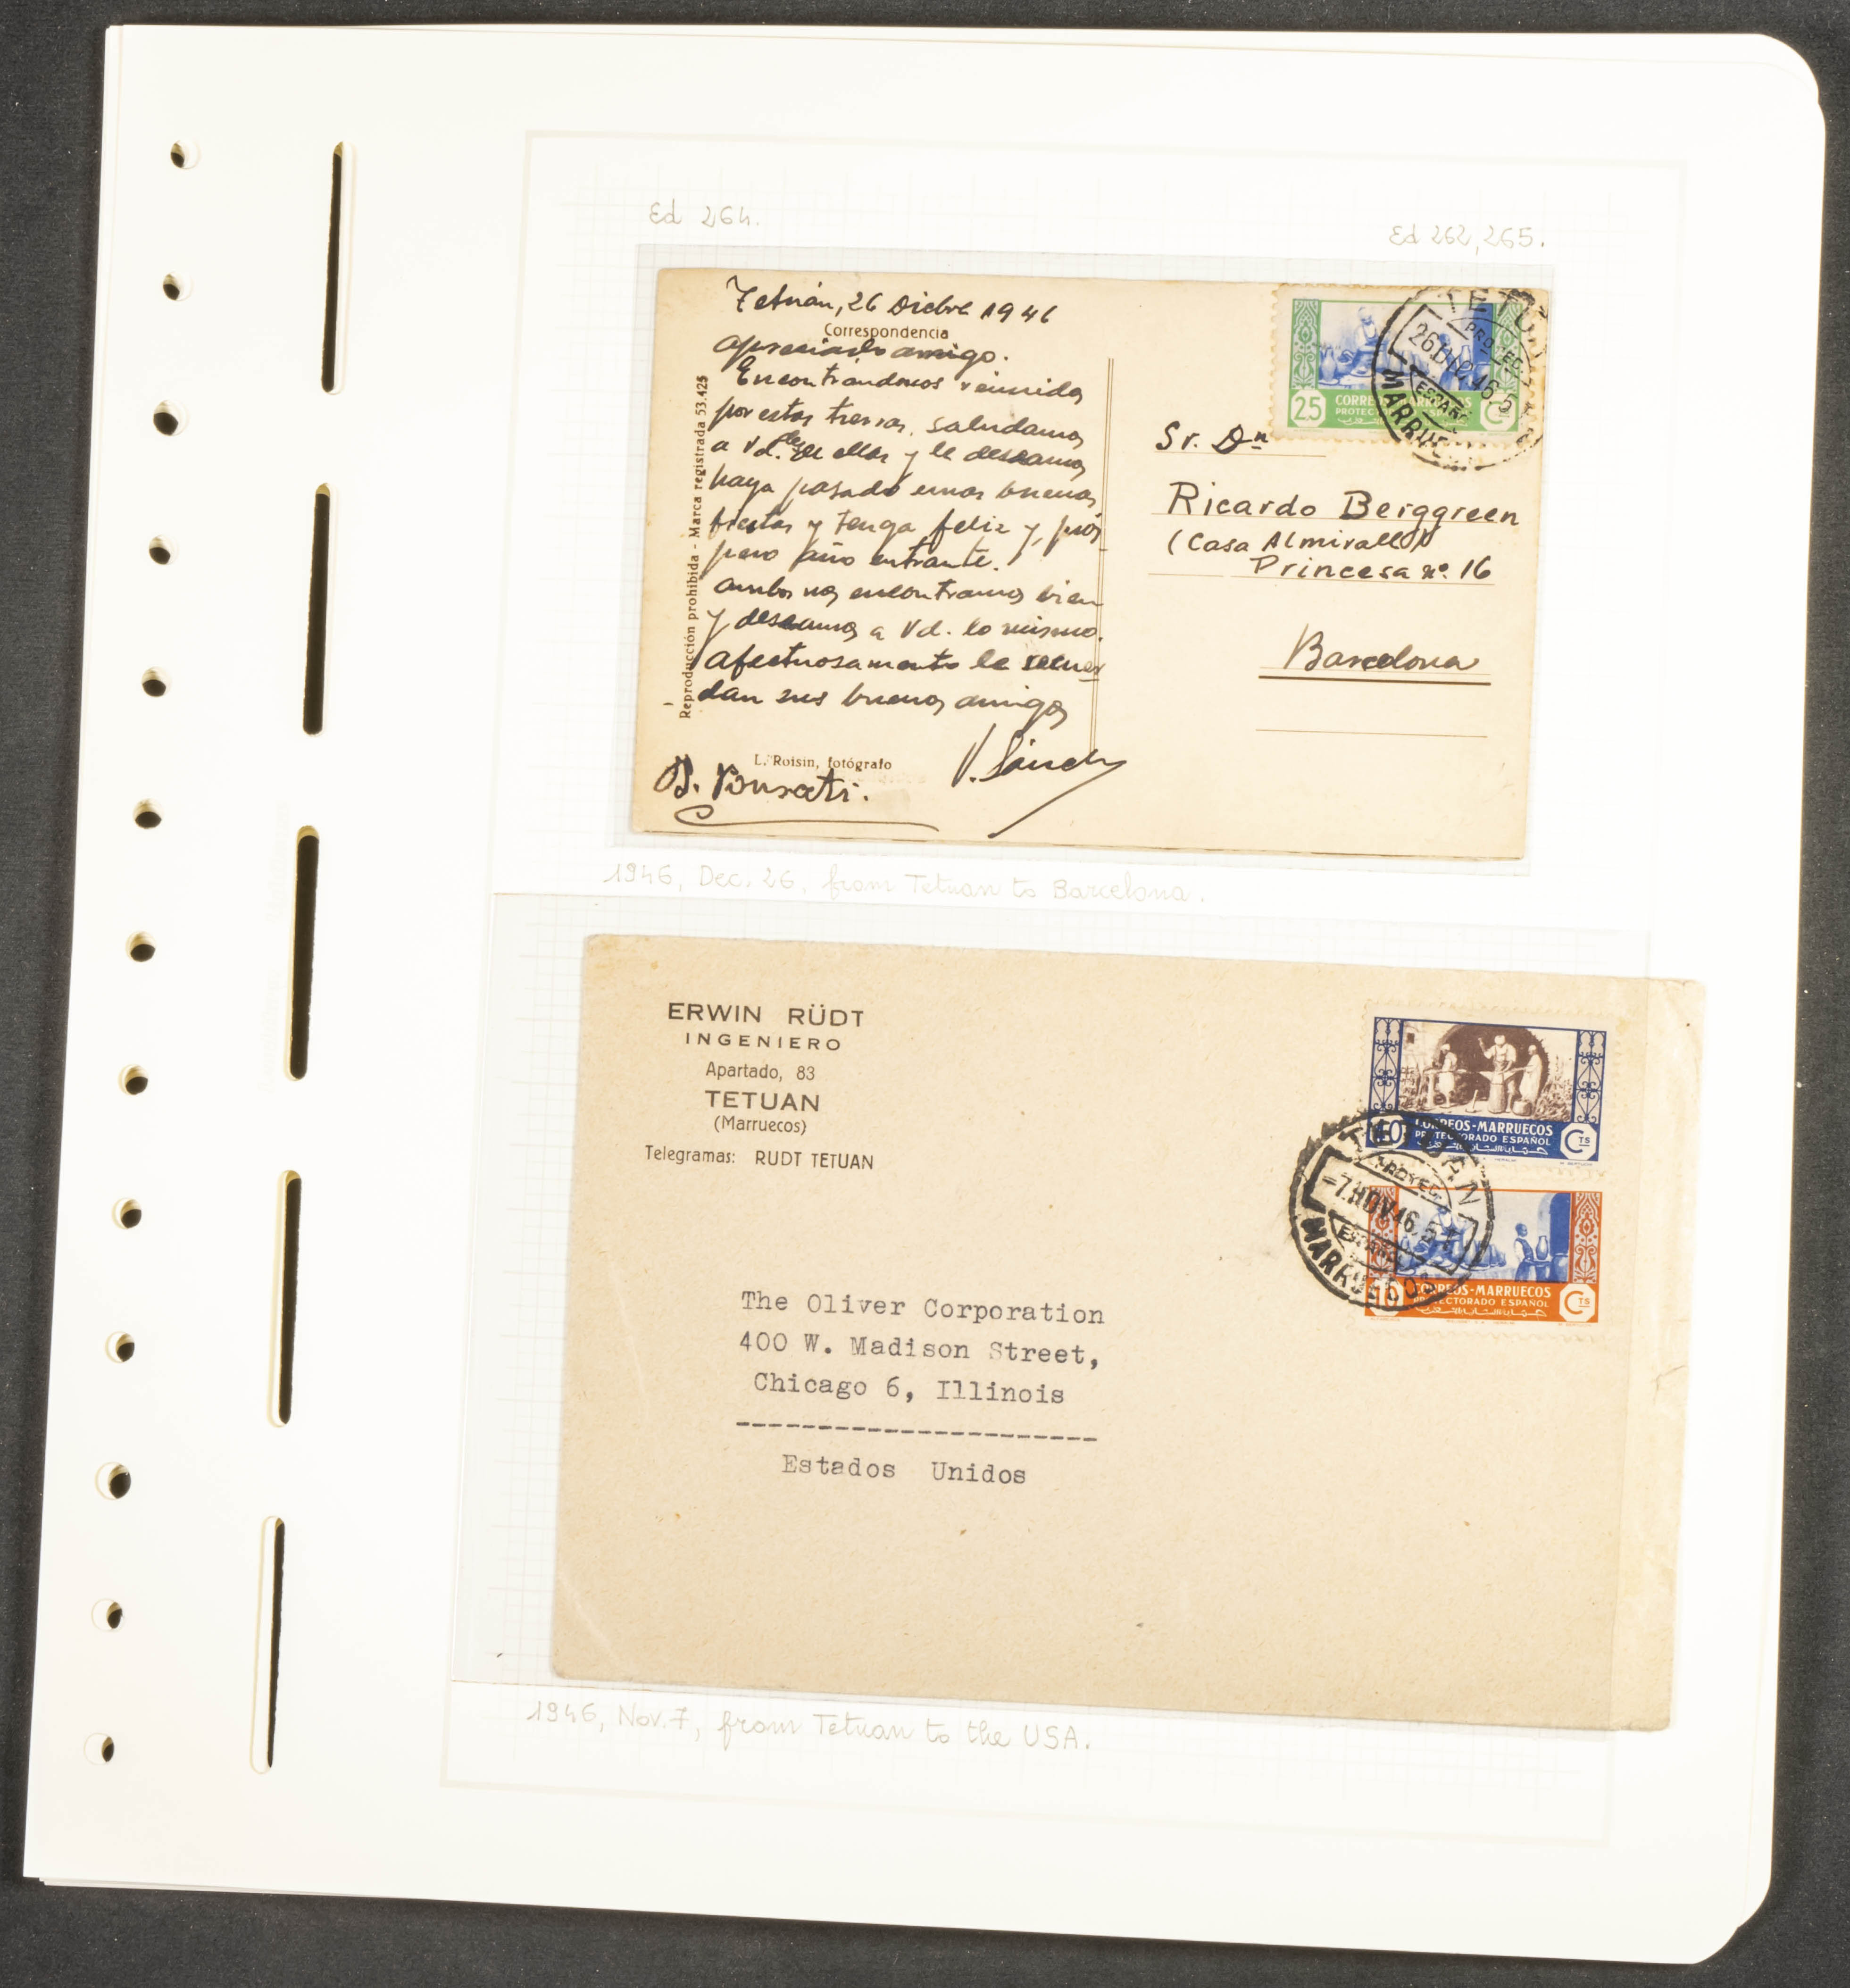 Ed 264.
Ed 262, 265.
Tetuán, 26 Dicbre 1946
Correspondencia
Apreciado amigo.
Encontrándonos reunidos
por estas tierras, saludamos
a Vd. desde ellas y le deseamos
haya pasado unas buenas
fiestas y tenga feliz y prós-
pero año entrante.
Ambos nos encontramos bien
y deseamos a Vd. lo mismo.
Afectuosamente le recuer-
dan sus buenos amigos
L. Roisin, fotógrafo
Reproducción prohibida - Marca registrada 53.425
25 CORREOS-MARRUECOS
PROTECTORADO ESPAÑOL
CTS
TETUAN
PROTEC.
26 DIC 46 5
ESPAÑOL
MARRUECOS
Sr. Dn
Ricardo Berggreen
(Casa Almirall)
Princesa nº. 16
Barcelona
1946, Dec. 26, from Tetuan to Barcelona.
ERWIN RÜDT
INGENIERO
Apartado, 83
TETUAN
(Marruecos)
Telegramas: RUDT TETUAN
40 CORREOS-MARRUECOS
PROTECTORADO ESPAÑOL
CTS
TETUAN
PROTEC.
-7.NOV.46 5
ESPAÑOL
MARRUECOS
10 CORREOS-MARRUECOS
PROTECTORADO ESPAÑOL
CTS
The Oliver Corporation
400 W. Madison Street,
Chicago 6, Illinois
-----------------------
Estados Unidos
1946, Nov. 7, from Tetuan to the USA.